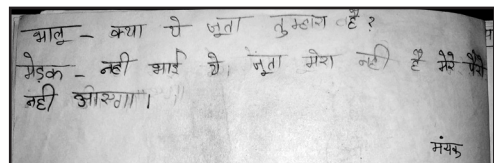 भालू - क्या ये जूता तुम्हारा है?
मेंढक - नही भाई ये जूता मेरा नही है मेरे पैरो
नही आएगा ।
मंयक